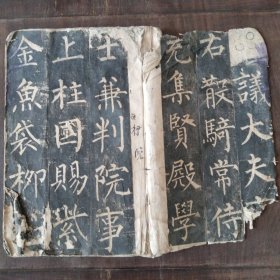 議大夫
右散騎常侍
充集賢殿學
士兼判院事
上柱國賜紫
金魚袋柳